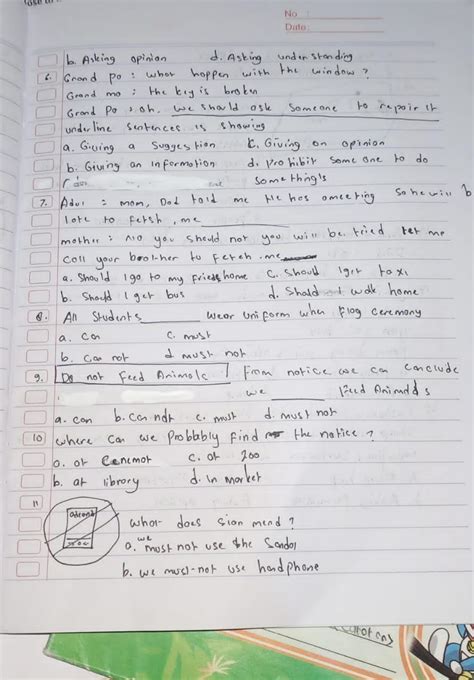 No :
Date :
b. Asking opinion d. Asking understanding
6. Grand pa : what happen with the window ?
Grand ma : the key is broken
Grand pa : oh, we should ask someone to repair it
underline sentences is showing
a. Giving a suggestion c. Giving an opinion
b. Giving an information d. prohibit some one to do
something's
7. Adui : mom, Dad told me He has a meeting So he will b
late to fetsh, me
mother : no you should not you will be tried. let me
call your brother to fetch. me
a. Should I go to my friends home c. Should I get taxi
b. Should I get bus d. Should I walk home
8. All Students wear uniform when flag ceremony
a. can c. must
b. can not d must not
9. Do not Feed Animals From notice we can conclude
we feed Animals
a. can b. can not c. must d. must not
10 where can we probably find the notice ?
a. at c. at zoo
b. at library d. in market
11
what does sign mend ?
a. we must not use the Sandal
b. we must not use handphone